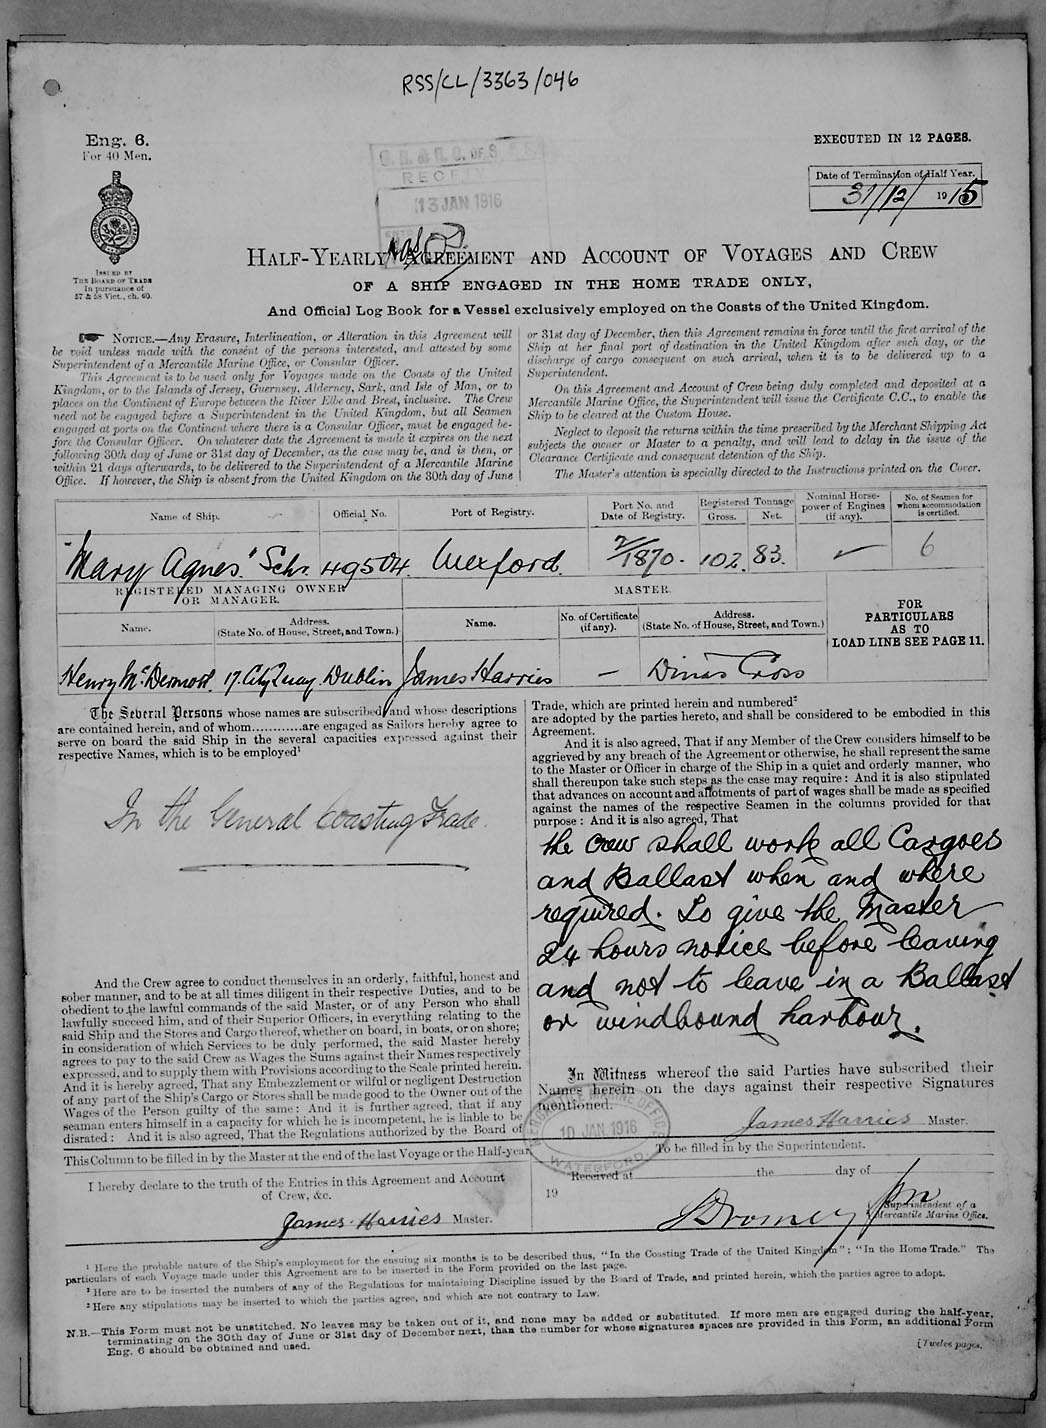 RSS/CL/3363/046
Eng. 6.
For 40 Men.
EXECUTED IN 12 PAGES.
Date of Termination of Half Year.
31/12/ 1915
RECEIV
13 JAN 1916
ISSUED BY
THE BOARD OF TRADE
In pursuance of
57 & 58 Vict., ch. 60.
HALF-YEARLY AGREEMENT AND ACCOUNT OF VOYAGES AND CREW
OF A SHIP ENGAGED IN THE HOME TRADE ONLY,
And Official Log Book for a Vessel exclusively employed on the Coasts of the United Kingdom.
NOTICE.—Any Erasure, Interlineation, or Alteration in this Agreement will
be void unless made with the consent of the persons interested, and attested by some
Superintendent of a Mercantile Marine Office, or Consular Officer.
This Agreement is to be used only for Voyages made on the Coasts of the United
Kingdom, or to the Islands of Jersey, Guernsey, Alderney, Sark, and Isle of Man, or to
places on the Continent of Europe between the River Elbe and Brest, inclusive. The Crew
need not be engaged before a Superintendent in the United Kingdom, but all Seamen
engaged at ports on the Continent where there is a Consular Officer, must be engaged be-
fore the Consular Officer. On whatever date the Agreement is made it expires on the next
following 30th day of June or 31st day of December, as the case may be, and is then, or
within 21 days afterwards, to be delivered to the Superintendent of a Mercantile Marine
Office. If however, the Ship is absent from the United Kingdom on the 30th day of June
or 31st day of December, then this Agreement remains in force until the first arrival of the
Ship at her final port of destination in the United Kingdom after such day, or the
discharge of cargo consequent on such arrival, when it is to be delivered up to a
Superintendent.
On this Agreement and Account of Crew being duly completed and deposited at a
Mercantile Marine Office, the Superintendent will issue the Certificate C.C., to enable the
Ship to be cleared at the Custom House.
Neglect to deposit the returns within the time prescribed by the Merchant Shipping Act
subjects the owner or Master to a penalty, and will lead to delay in the issue of the
Clearance Certificate and consequent detention of the Ship.
The Master's attention is specially directed to the Instructions printed on the Cover.
Name of Ship. Official No. Port of Registry. Port No. and Date of Registry. Registered Tonnage Gross. Net. Nominal Horse-power of Engines (if any). No. of Seamen for whom accommodation is certified.
"Mary Agnes" Schr. 49504. Wexford. 2/1870. 102. 83. 6
REGISTERED MANAGING OWNER
OR MANAGER.
MASTER.
Name. Address. (State No. of House, Street, and Town.) Name. No. of Certificate (if any). Address. (State No. of House, Street, and Town.)
FOR
PARTICULARS
AS TO
LOAD LINE SEE PAGE 11.
Henry McDermott. 17. City Quay Dublin James Harries — Dinas Cross
The Several Persons whose names are subscribed, and whose descriptions
are contained herein, and of whom............are engaged as Sailors hereby agree to
serve on board the said Ship in the several capacities expressed against their
respective Names, which is to be employed¹
In the General Coasting Trade.
And the Crew agree to conduct themselves in an orderly, faithful, honest and
sober manner, and to be at all times diligent in their respective Duties, and to be
obedient to the lawful commands of the said Master, or of any Person who shall
lawfully succeed him, and of their Superior Officers, in everything relating to the
said Ship and the Stores and Cargo thereof, whether on board, in boats, or on shore;
in consideration of which Services to be duly performed, the said Master hereby
agrees to pay to the said Crew as Wages the Sums against their Names respectively
expressed, and to supply them with Provisions according to the Scale printed herein.
And it is hereby agreed, That any Embezzlement or wilful or negligent Destruction
of any part of the Ship's Cargo or Stores shall be made good to the Owner out of the
Wages of the Person guilty of the same: And it is further agreed, that if any
seaman enters himself in a capacity for which he is incompetent, he is liable to be
disrated: And it is also agreed, That the Regulations authorized by the Board of
Trade, which are printed herein and numbered²
are adopted by the parties hereto, and shall be considered to be embodied in this
Agreement.
And it is also agreed, That if any Member of the Crew considers himself to be
aggrieved by any breach of the Agreement or otherwise, he shall represent the same
to the Master or Officer in charge of the Ship in a quiet and orderly manner, who
shall thereupon take such steps as the case may require: And it is also stipulated
that advances on account and allotments of part of wages shall be made as specified
against the names of the respective Seamen in the columns provided for that
purpose: And it is also agreed, That
the crew shall work all Cargoes
and Ballast when and where
required. To give the Master
24 hours notice before leaving
and not to leave in a Ballast
or windbound harbour.
In Witness whereof the said Parties have subscribed their
Names herein on the days against their respective Signatures
mentioned.
James Harries Master.
MERCANTILE MARINE OFFICE
10 JAN 1916
WATERFORD
This Column to be filled in by the Master at the end of the last Voyage or the Half-year.
I hereby declare to the truth of the Entries in this Agreement and Account
of Crew, &c.
James Harries Master.
To be filled in by the Superintendent.
Received at the day of
19
Superintendent of a
Mercantile Marine Office.
¹ Here the probable nature of the Ship's employment for the ensuing six months is to be described thus, "In the Coasting Trade of the United Kingdom"; "In the Home Trade." The
particulars of each Voyage made under this Agreement are to be inserted in the Form provided on the last page.
² Here are to be inserted the numbers of any of the Regulations for maintaining Discipline issued by the Board of Trade, and printed herein, which the parties agree to adopt.
³ Here any stipulations may be inserted to which the parties agree, and which are not contrary to Law.
N.B.—This Form must not be unstitched. No leaves may be taken out of it, and none may be added or substituted. If more men are engaged during the half-year,
terminating on the 30th day of June or 31st day of December next, than the number for whose signatures spaces are provided in this Form, an additional Form
Eng. 6 should be obtained and used.
[Twelve pages.